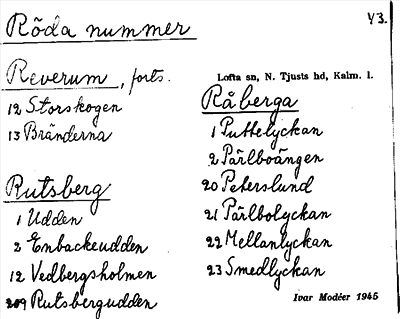 Röda nummer
43.
Reverum, forts.
12 Storskogen
13 Bränderna
Rutsberg
1 Udden
2 Enbackeudden
12 Vedbergsholmen
209 Rutsbergudden
Lofta sn, N. Tjusts hd, Kalm. l.
Råberga
1 Puttelyckan
2 Pärlboängen
20 Peterslund
21 Pärlbolyckan
22 Mellanlyckan
23 Smedlyckan
Ivar Modéer 1945